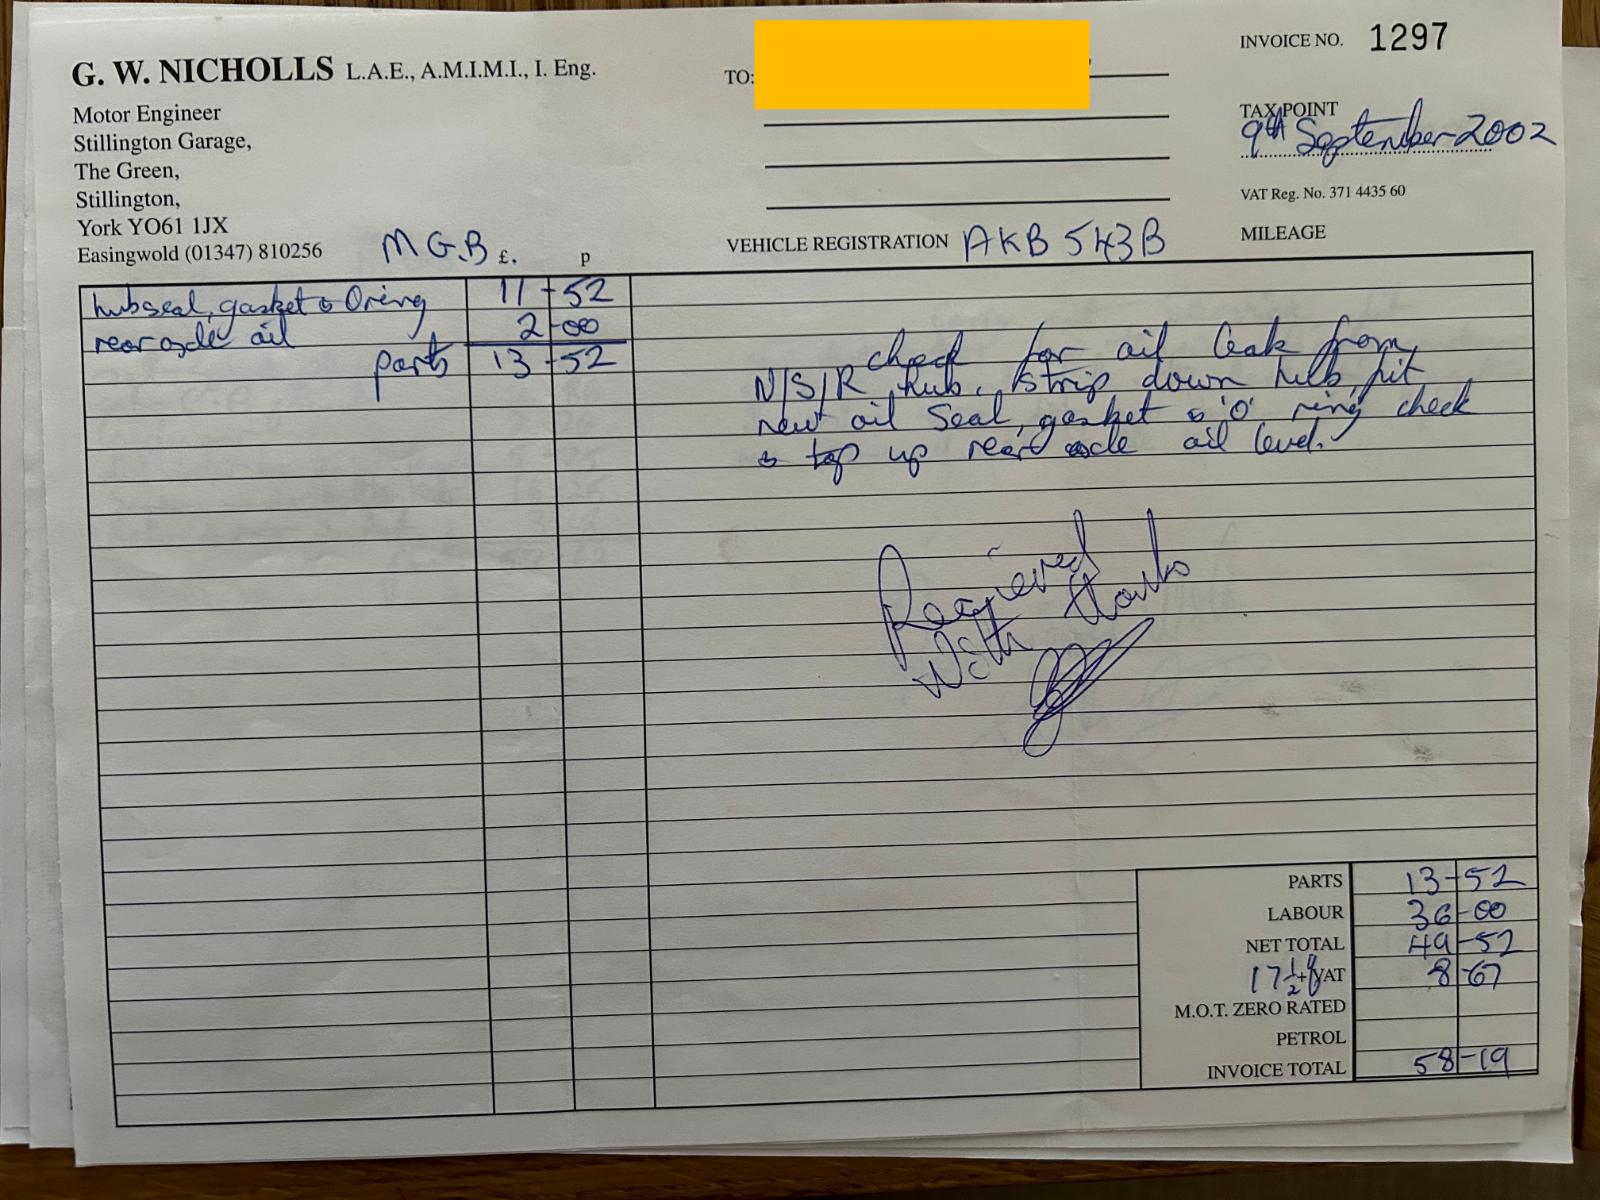 G. W. NICHOLLS L.A.E., A.M.I.M.I., I. Eng.
Motor Engineer
Stillington Garage,
The Green,
Stillington,
York YO61 1JX
Easingwold (01347) 810256
MGB
£. p
TO:
INVOICE NO. 1297
TAX POINT
9th September 2002
VAT Reg. No. 371 4435 60
VEHICLE REGISTRATION AKB 543B
MILEAGE
hub seal, gasket & O ring 11-52
rear axle oil 2-00
parts 13-52
check for oil leak from
N/S/R hub. strip down hub, fit
new oil seal, gasket & 'O' ring check
& top up rear axle oil level.
Recieved
With thanks
PARTS 13-52
LABOUR 36-00
NET TOTAL 49-52
17 1/2 % VAT 8-67
M.O.T. ZERO RATED
PETROL
INVOICE TOTAL 58-19